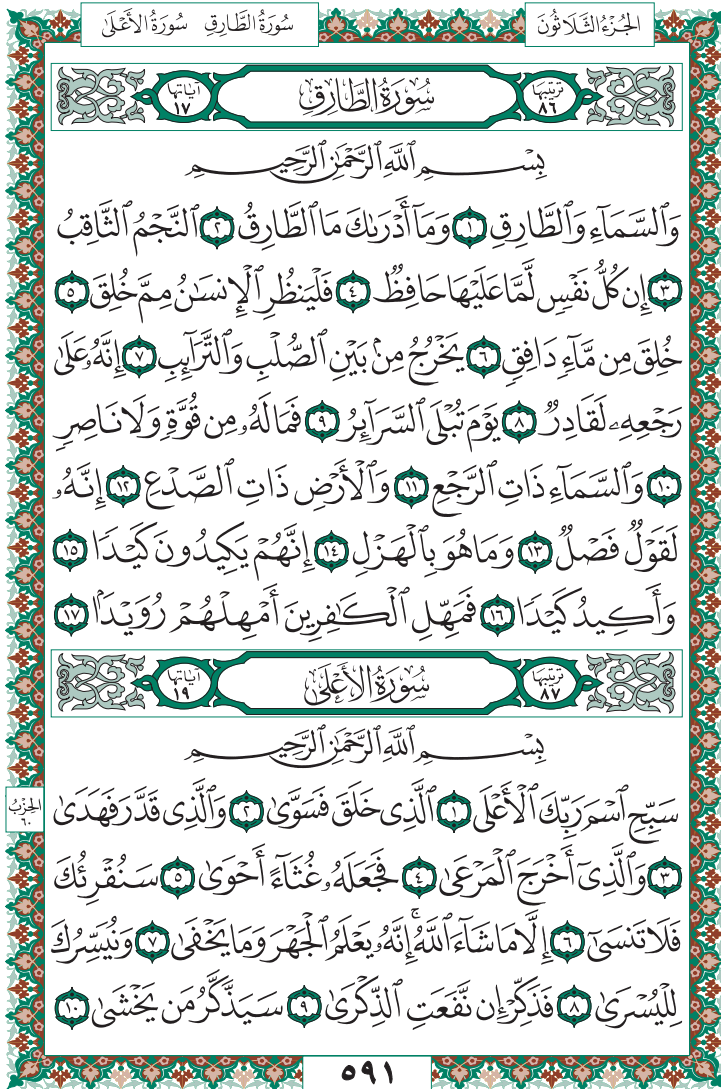 الجُزْءُ الثَّلَاثُونَ
سُورَةُ الطَّارِقِ سُورَةُ الأَعْلَىٰ
تَرْتِيبُهَا ٨٦ سُورَةُ الطَّارِقِ آيَاتُهَا ١٧
بِسْمِ ٱللَّهِ ٱلرَّحْمَٰنِ ٱلرَّحِيمِ
وَٱلسَّمَآءِ وَٱلطَّارِقِ ١ وَمَآ أَدْرَىٰكَ مَا ٱلطَّارِقُ ٢ ٱلنَّجْمُ ٱلثَّاقِبُ
٣ إِن كُلُّ نَفْسٍ لَّمَّا عَلَيْهَا حَافِظٌ ٤ فَلْيَنظُرِ ٱلْإِنسَٰنُ مِمَّ خُلِقَ ٥
خُلِقَ مِن مَّآءٍ دَافِقٍ ٦ يَخْرُجُ مِنۢ بَيْنِ ٱلصُّلْبِ وَٱلتَّرَآئِبِ ٧ إِنَّهُۥ عَلَىٰ
رَجْعِهِۦ لَقَادِرٌ ٨ يَوْمَ تُبْلَى ٱلسَّرَآئِرُ ٩ فَمَا لَهُۥ مِن قُوَّةٍ وَلَا نَاصِرٍ
١٠ وَٱلسَّمَآءِ ذَاتِ ٱلرَّجْعِ ١١ وَٱلْأَرْضِ ذَاتِ ٱلصَّدْعِ ١٢ إِنَّهُۥ
لَقَوْلٌ فَصْلٌ ١٣ وَمَا هُوَ بِٱلْهَزْلِ ١٤ إِنَّهُمْ يَكِيدُونَ كَيْدًا ١٥
وَأَكِيدُ كَيْدًا ١٦ فَمَهِّلِ ٱلْكَٰفِرِينَ أَمْهِلْهُمْ رُوَيْدًۢا ١٧
تَرْتِيبُهَا ٨٧ سُورَةُ الأَعْلَىٰ آيَاتُهَا ١٩
بِسْمِ ٱللَّهِ ٱلرَّحْمَٰنِ ٱلرَّحِيمِ
سَبِّحِ ٱسْمَ رَبِّكَ ٱلْأَعْلَى ١ ٱلَّذِى خَلَقَ فَسَوَّىٰ ٢ وَٱلَّذِى قَدَّرَ فَهَدَىٰ
الحِزْبُ ٦٠
٣ وَٱلَّذِىٓ أَخْرَجَ ٱلْمَرْعَىٰ ٤ فَجَعَلَهُۥ غُثَآءً أَحْوَىٰ ٥ سَنُقْرِئُكَ
فَلَا تَنسَىٰٓ ٦ إِلَّا مَا شَآءَ ٱللَّهُ ۚ إِنَّهُۥ يَعْلَمُ ٱلْجَهْرَ وَمَا يَخْفَىٰ ٧ وَنُيَسِّرُكَ
لِلْيُسْرَىٰ ٨ فَذَكِّرْ إِن نَّفَعَتِ ٱلذِّكْرَىٰ ٩ سَيَذَّكَّرُ مَن يَخْشَىٰ ١٠
٥٩١